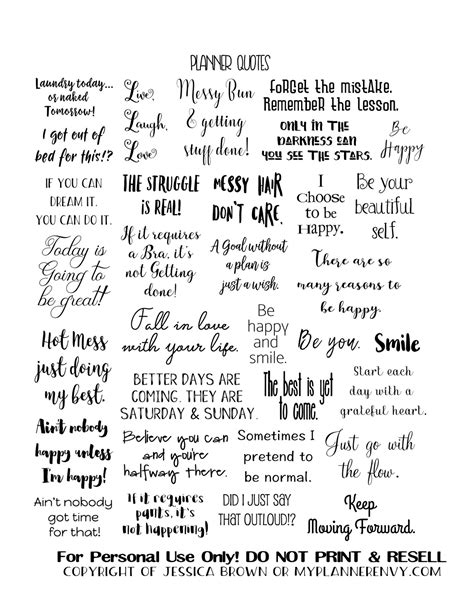 PLANNER QUOTES
Laundry today...
or naked
Tomorrow!
Live,
Laugh,
Love
Messy Bun
& getting
stuff done!
forget the mistake.
Remember the lesson.
I got out of
bed for this!?
Only in the
darkness can
you see the stars.
Be
Happy
IF YOU CAN
DREAM IT.
YOU CAN DO IT.
THE STRUGGLE
is REAL!
MESSY HAIR
DON'T CARE.
I
Choose
to be
Happy.
Be your
beautiful
self.
Today is
Going to
be great!
If it requires
a Bra, it's
not Getting
done!
A Goal without
a plan is
just a wish.
There are so
many reasons to
be happy.
Hot Mess
just doing
my best.
Fall in love
with your life.
Be
happy
and
smile.
Be you.
Smile
BETTER DAYS ARE
COMING. THEY ARE
SATURDAY & SUNDAY.
The best is yet
to come.
Start each
day with a
grateful heart.
Ain't nobody
happy unless
I'm happy!
Believe you can
and you're
halfway there.
Sometimes I
pretend to
be normal.
Just go with
the flow.
Ain't nobody
got time
for that!
If it requires
pants, it's
not happening!
DID I JUST SAY
THAT OUTLOUD!?
Keep
Moving Forward.
For Personal Use Only! DO NOT PRINT & RESELL
COPYRIGHT OF JESSICA BROWN OR MYPLANNERENVY.COM